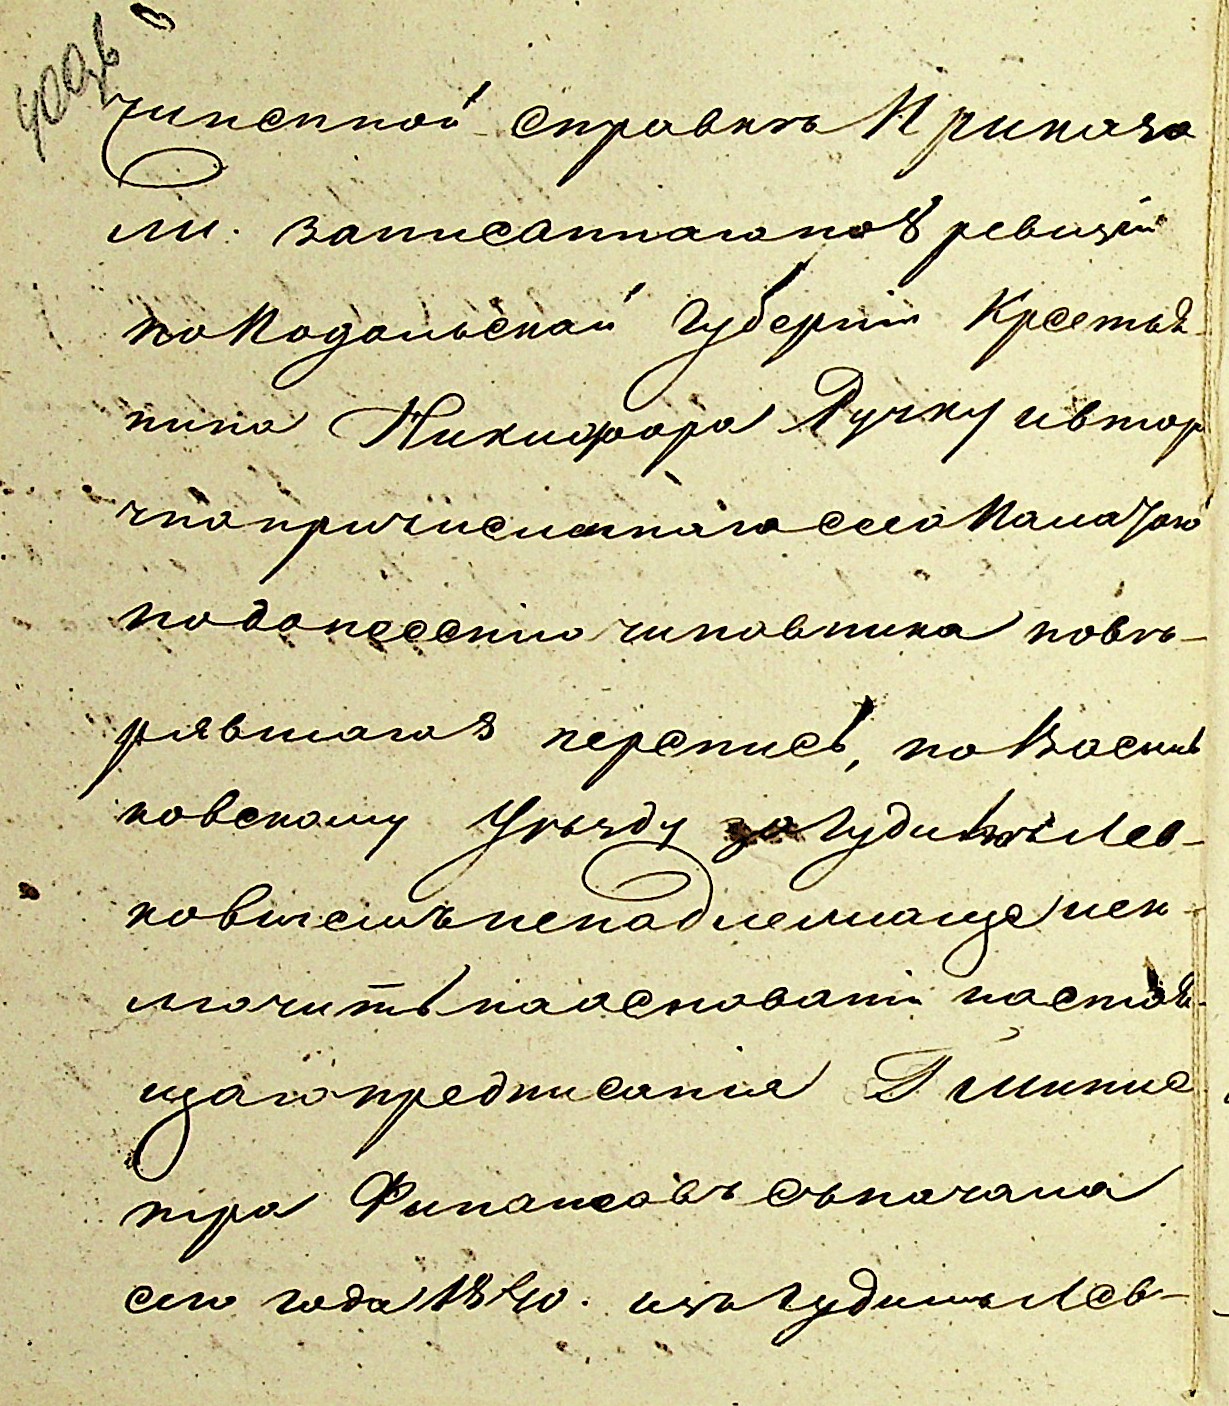 400 об
чиненной справкѣ Приказа
ли. записаннаго по 8 ревизіи
по Подольской Губерніи Крестья-
нина Никифора Ручку и втор
чно причисленнаго сего Палатою
по донесенію чиновника повѣ-
рявшаго 8 перепись, по Василь
ковскому Уѣзду за Іудкою Лей-
ковичемъ ненадлежаще иск-
лючить на основаніи настоя-
щаго предписанія Г Минис
тра Финансовъ съ начала
сего года 1840. изъ Лей-